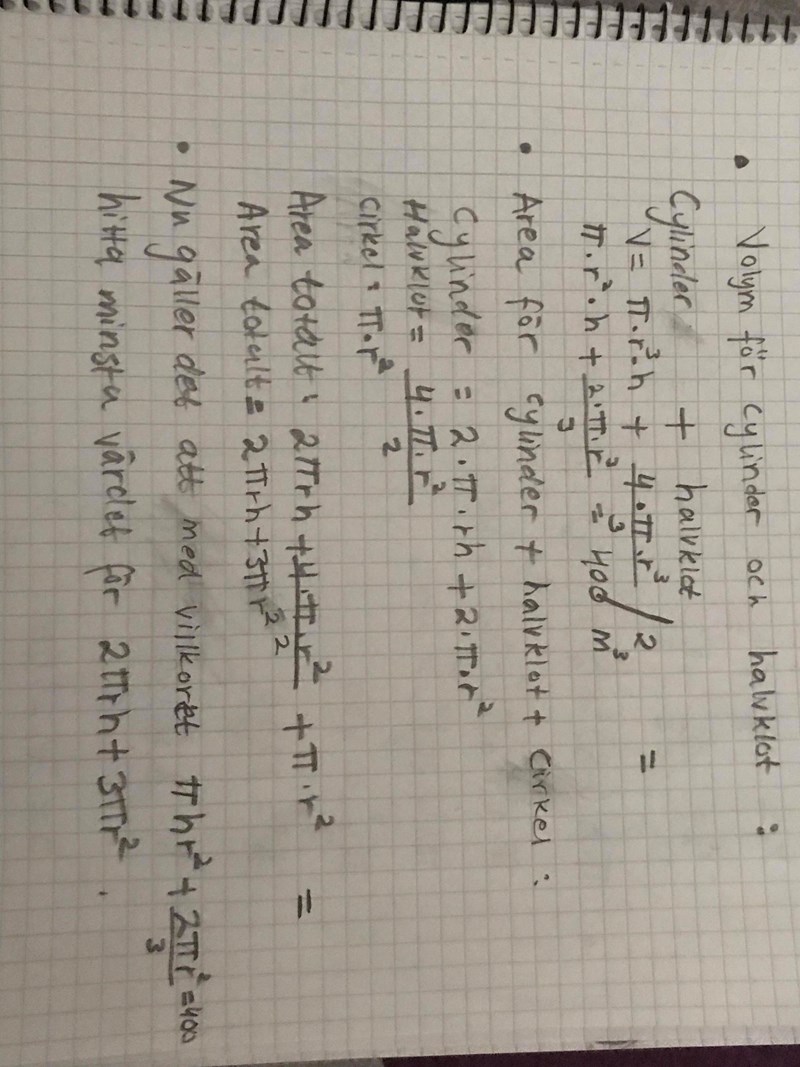 • Volym för cylinder och halvklot :
Cylinder + halvklot
V = π·r³·h + 4·π·r³/3 / 2 =
π·r²·h + 2·π·r³/3 = 400 m³
• Area för cylinder + halvklot + cirkel :
Cylinder = 2·π·rh + 2·π·r²
Halvklot = 4·π·r²/2
cirkel = π·r²
Area totalt = 2πrh + 4·π·r²/2 + π·r² =
Area totalt = 2πrh + 3πr²
• Nu gäller det att med villkoret πhr² + 2πr²/3 = 400
hitta minsta värdet för 2πrh + 3πr² .